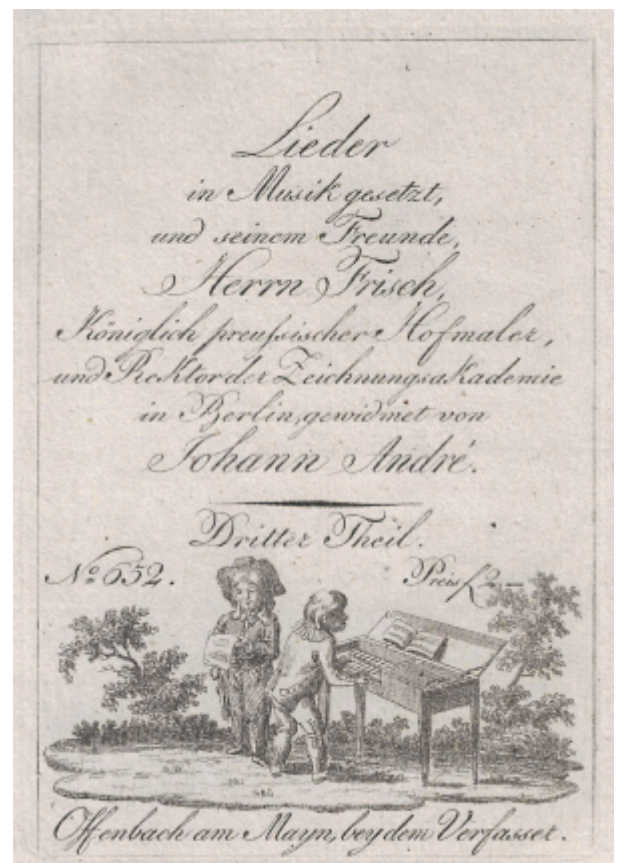 Lieder
in Musik gesetzt,
und seinem Freunde,
Herrn Frisch,
Königlich preußischer Hofmaler,
und Rektor der Zeichnungsakademie
in Berlin, gewidmet von
Johann André.
Dritter Theil.
No 652.
Preis f 2. —
Offenbach am Mayn, bey dem Verfasser.